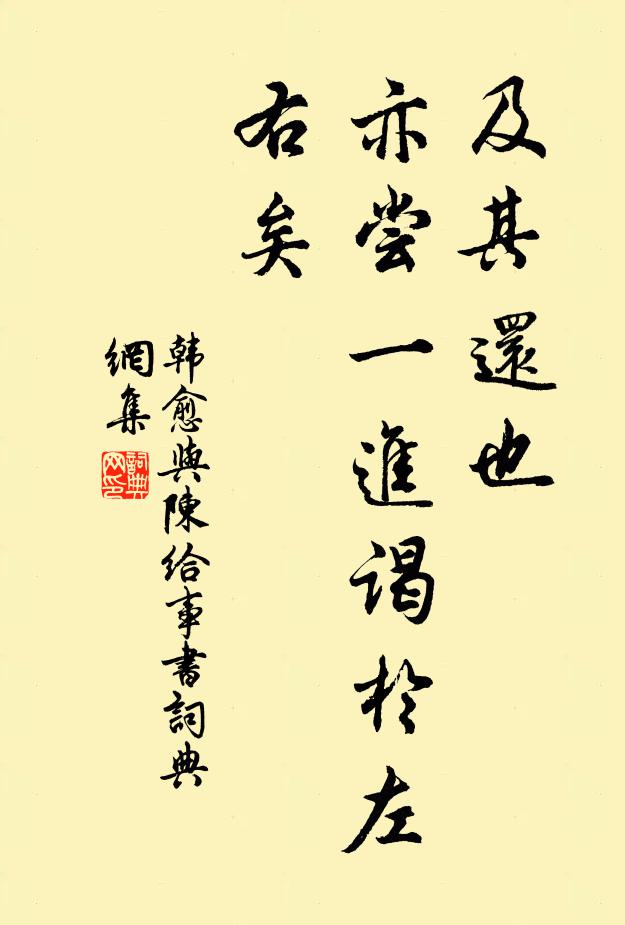 及其還也
亦尝一進谒於左
右矣
韩愈與陳给事書詞典
網集
詞典
网印